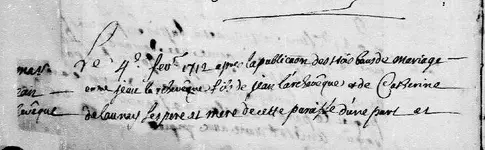 Le 4e fevr 1712 apres la publicaon des trois bans de mariage
mas
entre jean larchevêque fils de jean larchevêque et de Catherine
ean
delaunay ses pere et mere de cette paroisse d'une part et
hevêque